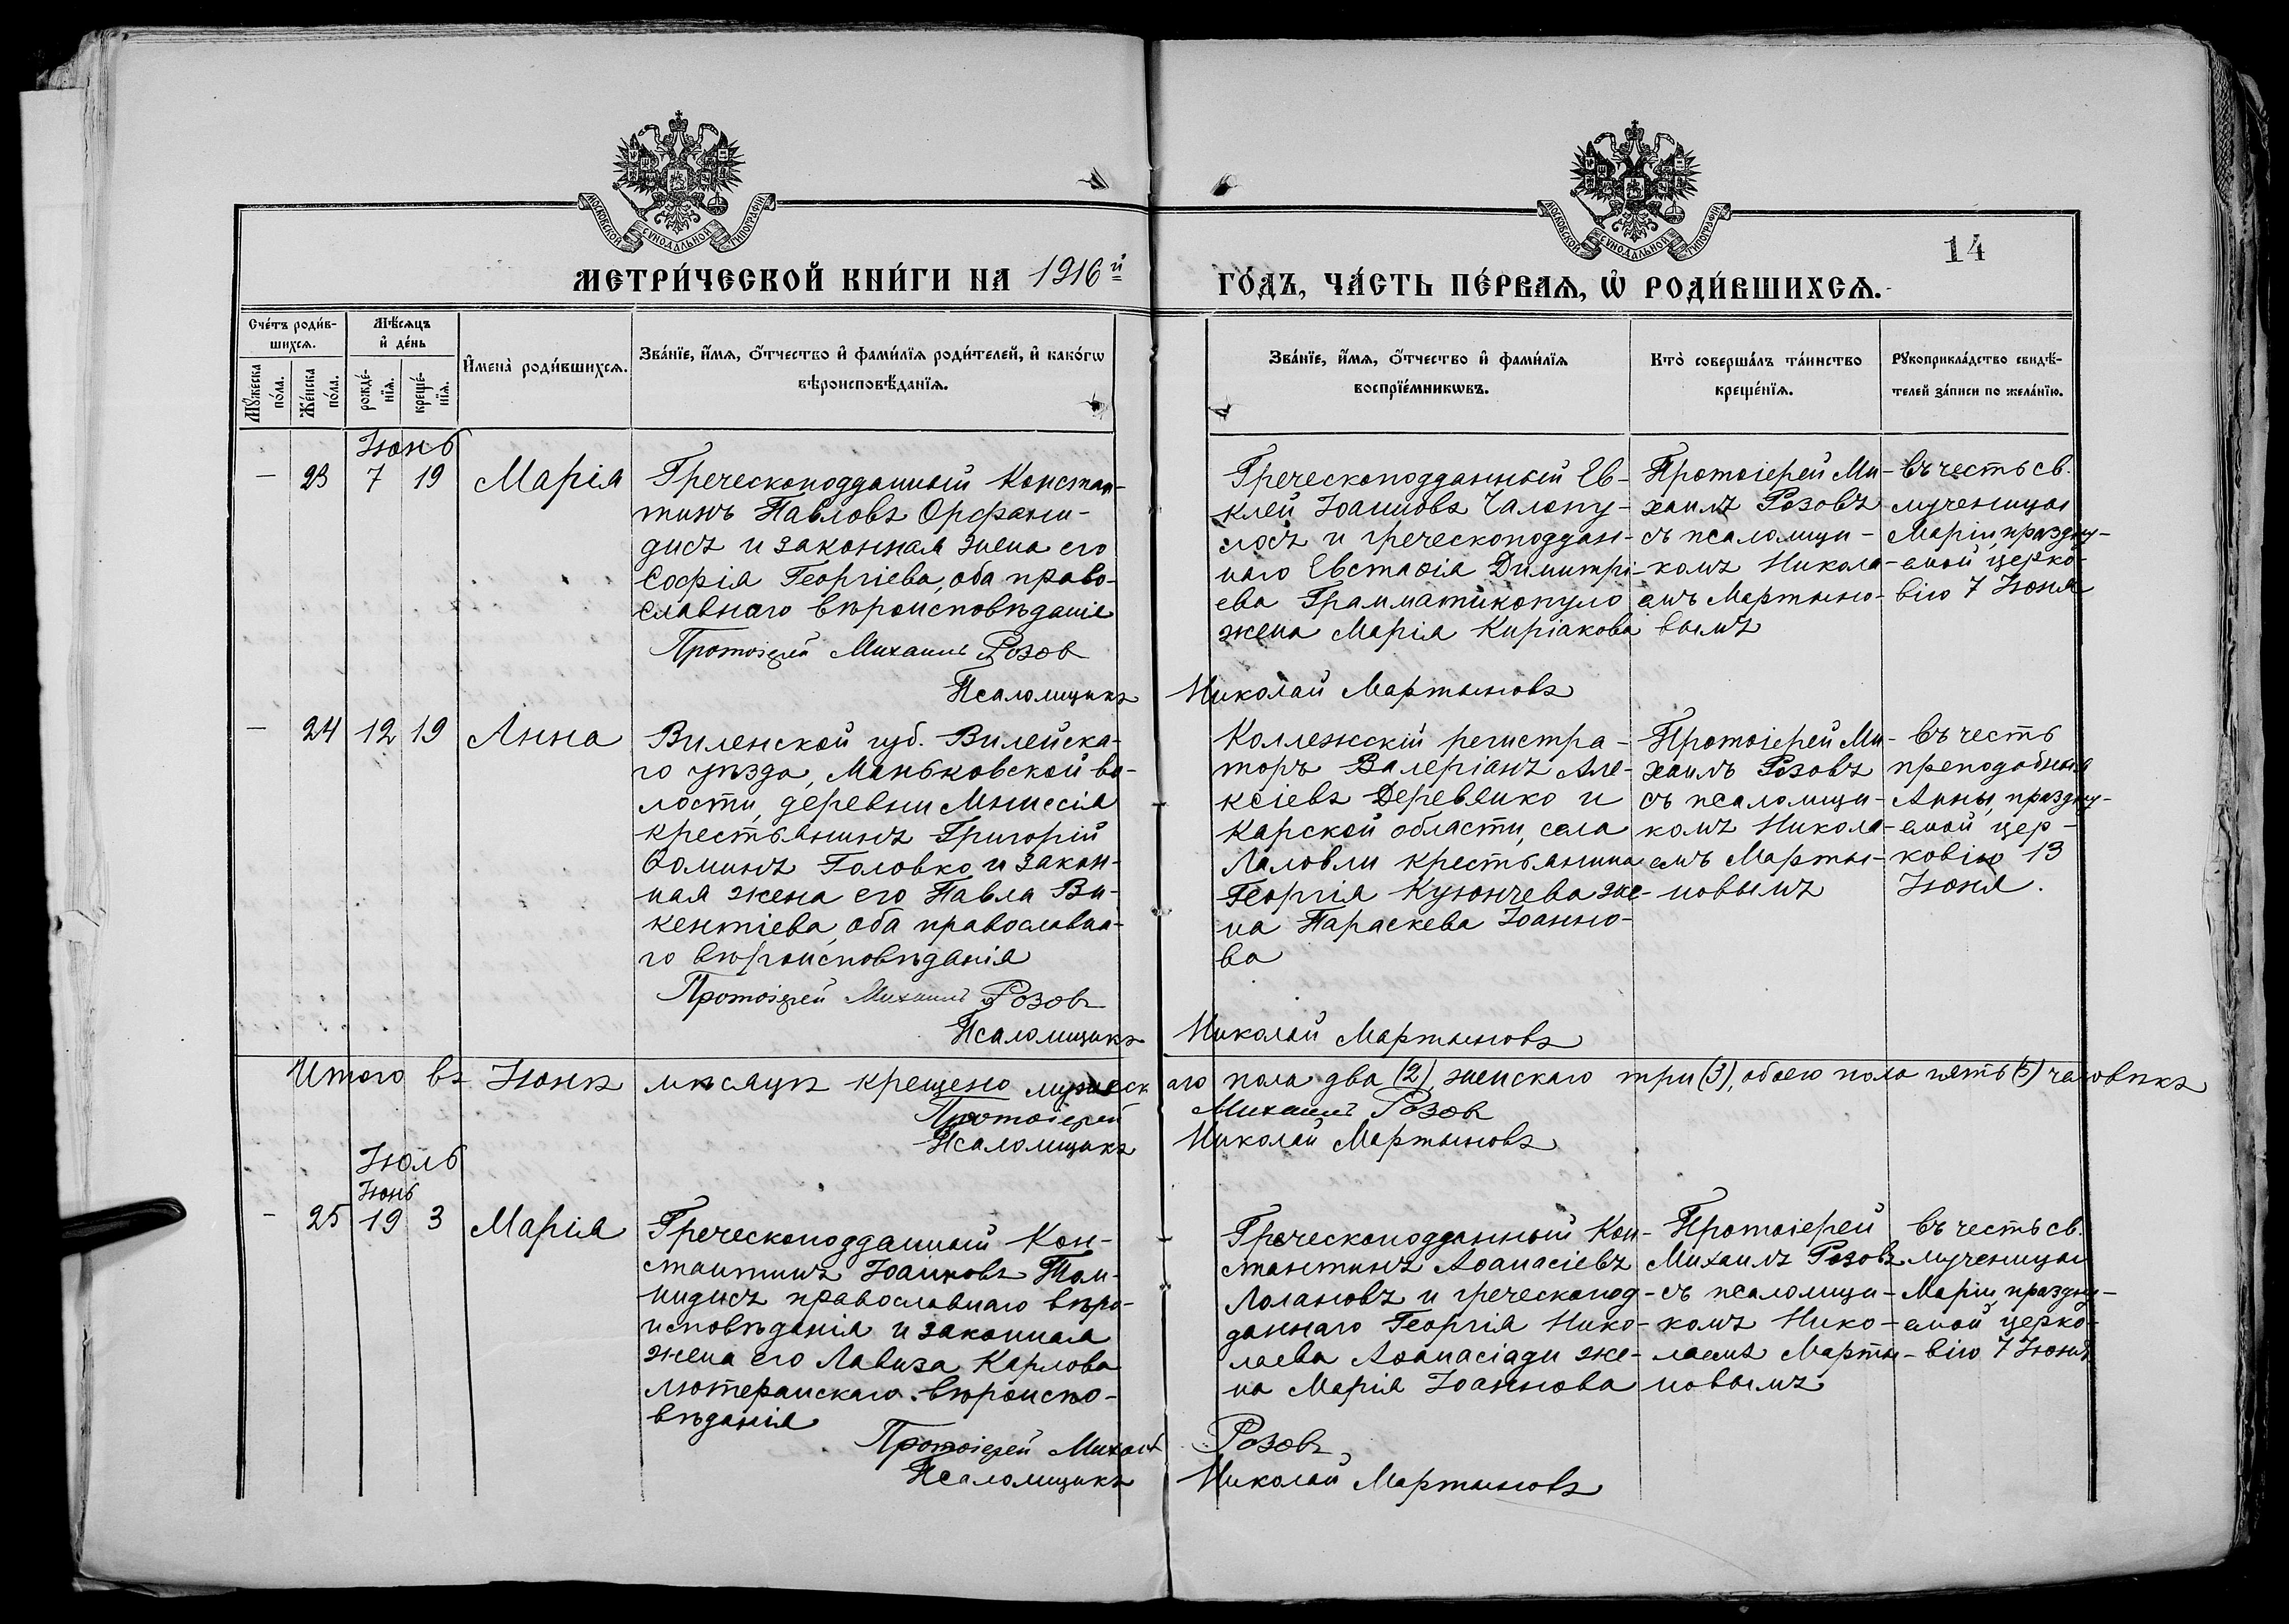 МОСКОВСКОЙ СѴНОДАЛЬНОЙ ТИПОГРАФІИ
МОСКОВСКОЙ СѴНОДАЛЬНОЙ ТИПОГРАФІИ
14
МЕТРИ́ЧЕСКОЙ КНИ́ГИ НА 1916й
ГО́ДЪ, ЧА́СТЬ ПЕ́РВАѦ, Ѡ҆ РОДИ́ВШИХСѦ.
Сче́тъ роди́в-
шихсѧ.
Мꙋ́жеска
по́ла.
Же́нска
по́ла.
Мѣ́сѧцъ
и҆ де́нь
рожде́-
нїѧ.
креще́-
нїѧ.
И҆мена̀ роди́вшихсѧ.
Зва́нїе, и҆́мѧ, ѻ҆́тчество и҆ фами́лїѧ роди́телей, и҆ како́гѡ
вѣроисповѣ́данїѧ.
Зва́нїе, и҆́мѧ, ѻ҆́тчество и҆ фами́лїѧ
воспрїе́мникѡвъ.
Кто̀ соверша́лъ та́инство
креще́нїѧ.
Рꙋкоприкла́дство свидѣ́-
телей за́писи по жела́нїю.
Іюнь
— 23 7 19 Марія
Греческоподданный Констан-
тинъ Павловъ Орфани-
дисъ и законная жена его
Софія Георгіева, оба право-
славнаго вѣроисповѣданія
Протоіерей Михаилъ Розов
Псаломщикъ Николай Мартыновъ
Греческоподданный Ев-
клей Іоанновъ Чалопу-
лосъ и греческоподдан-
наго Евстафія Димитрі-
ева Грамматикопуло
жена Марія Киріакова
Протоіерей Ми-
хаилъ Розовъ
съ псаломщи-
комъ Никола-
емъ Мартыно-
вымъ
Въ честь св.
мученицы
Маріи, праздну-
емой церко-
вію 7 Іюня
— 24 12 19 Анна
Виленской губ. Вилейска-
го уѣзда, Маньковской во-
лости, деревни
крестьянинъ Григорій
Ѳоминъ Головко и закон-
ная жена его Павла Ви-
кентіева, оба православна-
го вѣроисповѣданія
Протоіерей Михаилъ Розовъ
Псаломщикъ Николай Мартыновъ
Коллежскій регистра-
торъ Валеріанъ Але-
ксіевъ Деревенко и
Карской области, села
Лаловли крестьянина
Георгія Кузончева же-
на Параскева Іоанно-
ва
Протоіерей Ми-
хаилъ Розовъ
съ псаломщи-
комъ Никола-
емъ Марты-
новымъ
Въ честь
преподобныя
Анны, праздну-
емой цер-
ковію 13
Іюня.
Итого въ Іюнѣ мѣсяцѣ крещено мужескаго пола два (2), женскаго три (3), обоего пола пять (5) человѣкъ
Протоіерей Михаилъ Розовъ
Псаломщикъ Николай Мартыновъ
Іюль
Іюнь
— 25 19 3 Марія
Греческоподданный Кон-
стантинъ Іоанновъ Том-
пидисъ православнаго вѣро-
исповѣданія и законная
жена его Лавиза Карлова
лютеранскаго вѣроиспо-
вѣданія
Протоіерей Михаилъ Розовъ
Псаломщикъ Николай Мартыновъ
Греческоподданный Кон-
стантинъ Аѳанасіевъ
Лолановъ и греческопод-
даннаго Георгія Нико-
лаева Аѳанасіади же-
на Марія Іоаннова
Протоіерей
Михаилъ Розовъ
съ псаломщи-
комъ Нико-
лаемъ Марты-
новымъ
Въ честь св.
мученицы
Маріи, праздну-
емой церко-
вію 7 Іюня